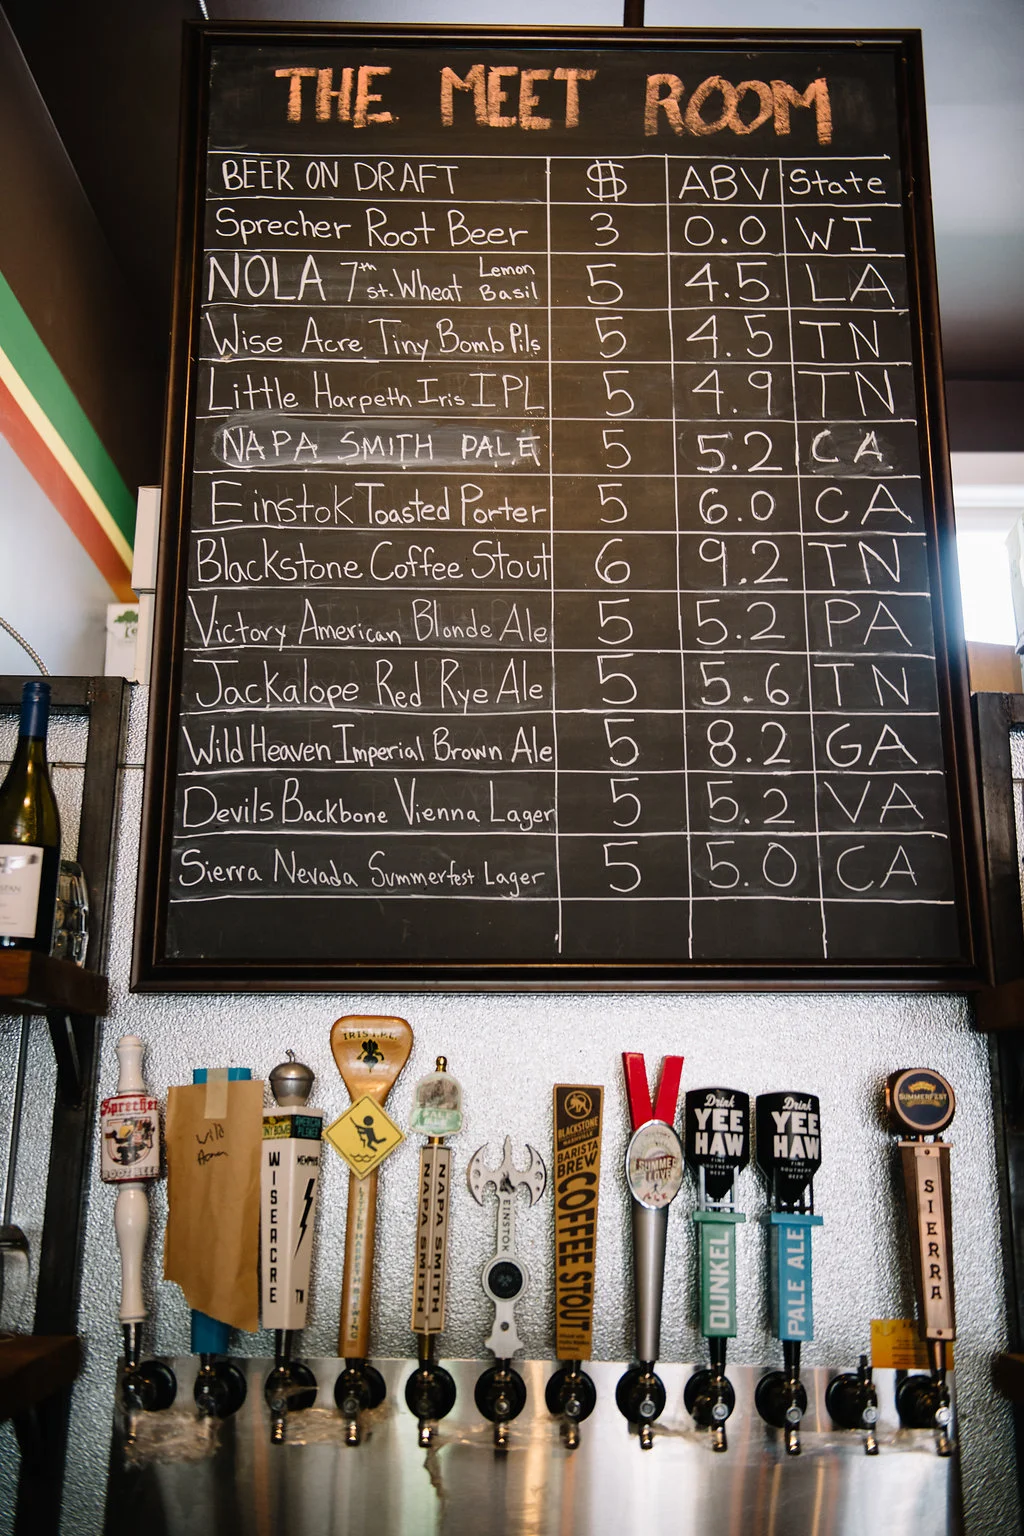 THE MEET ROOM
BEER ON DRAFT $ ABV State
Sprecher Root Beer 3 0.0 WI
NOLA 7th st. Wheat Lemon Basil 5 4.5 LA
Wise Acre Tiny Bomb Pils 5 4.5 TN
Little Harpeth Iris IPL 5 4.9 TN
NAPA SMITH PALE 5 5.2 CA
Einstok Toasted Porter 5 6.0 CA
Blackstone Coffee Stout 6 9.2 TN
Victory American Blonde Ale 5 5.2 PA
Jackalope Red Rye Ale 5 5.6 TN
Wild Heaven Imperial Brown Ale 5 8.2 GA
Devils Backbone Vienna Lager 5 5.2 VA
Sierra Nevada Summerfest Lager 5 5.0 CA
Sprecher
ROOT BEER
Wild
TINY BOMB
WISEACRE
MEMPHIS
TN
IRIS I.P.L.
LITTLE HARPETH BREWING
NAPA SMITH
NAPA SMITH
EINSTOK
BLACKSTONE
NASHVILLE
BARISTA
BREW
COFFEE STOUT
SUMMER
LOVE
ALE
Drink
YEE
HAW
FINE
SOUTHERN
BEER
DUNKEL
Drink
YEE
HAW
FINE
SOUTHERN
BEER
PALE ALE
SUMMERFEST
SIERRA